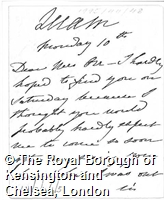 Monday 10th
Dear Mrs
I hardly
hoped to find you on
Saturday because I
thought you would
probably hardly expect
me to come so soon
was out
© The Royal Borough of
Kensington and
Chelsea, London